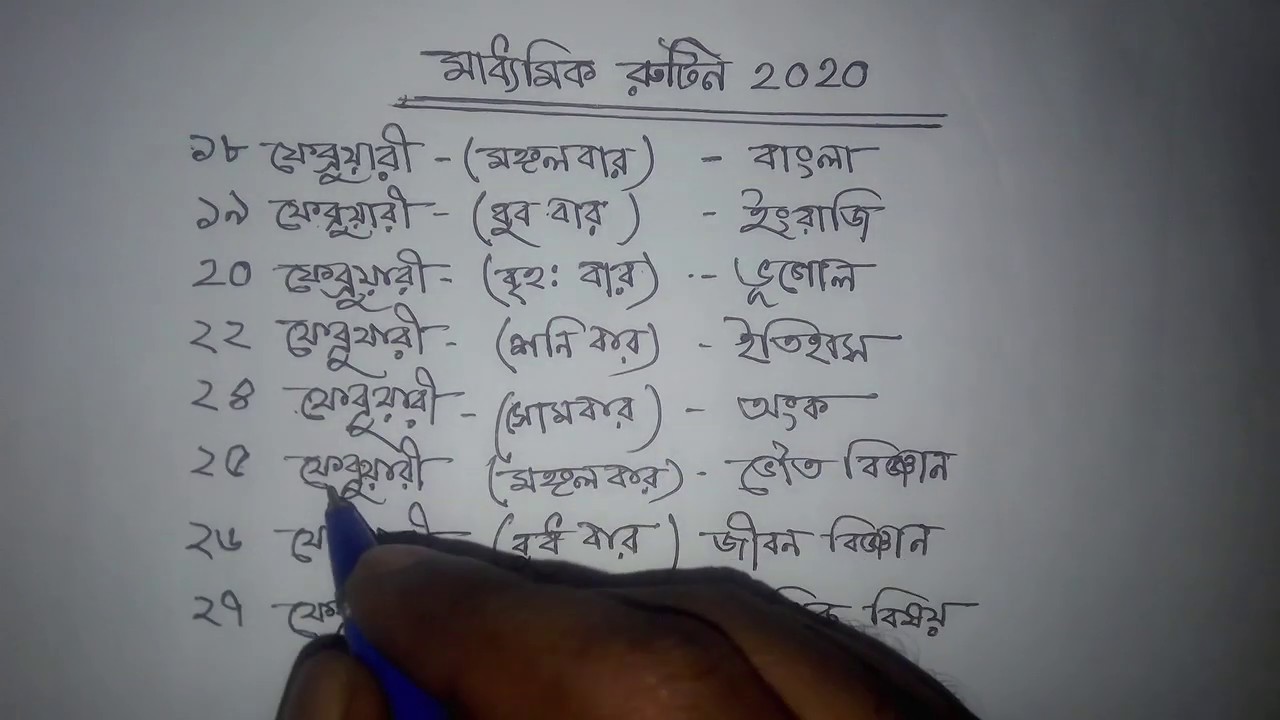 মাধ্যমিক রুটিন ২০২০
১৮ ফেব্রুয়ারী - (মঙ্গলবার) - বাংলা
১৯ ফেব্রুয়ারী - (বুধ বার) - ইংরাজি
২০ ফেব্রুয়ারী - (বৃহঃ বার) - ভূগোল
২২ ফেব্রুয়ারী - (শনি বার) - ইতিহাস
২৪ ফেব্রুয়ারী - (সোমবার) - অংক
২৫ ফেব্রুয়ারী (মঙ্গলবার) - ভৌত বিজ্ঞান
২৬ (বুধ বার) জীবন বিজ্ঞান
২৭ বিষয়